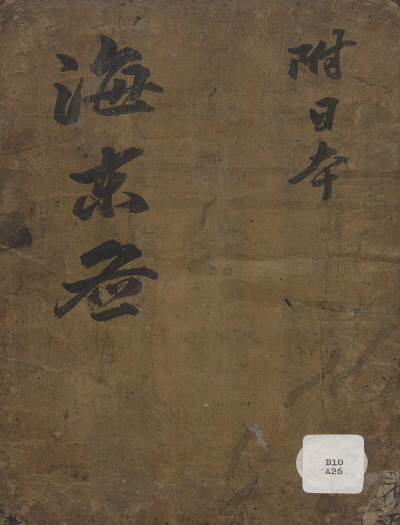 海東圖
附日本
B10
A26